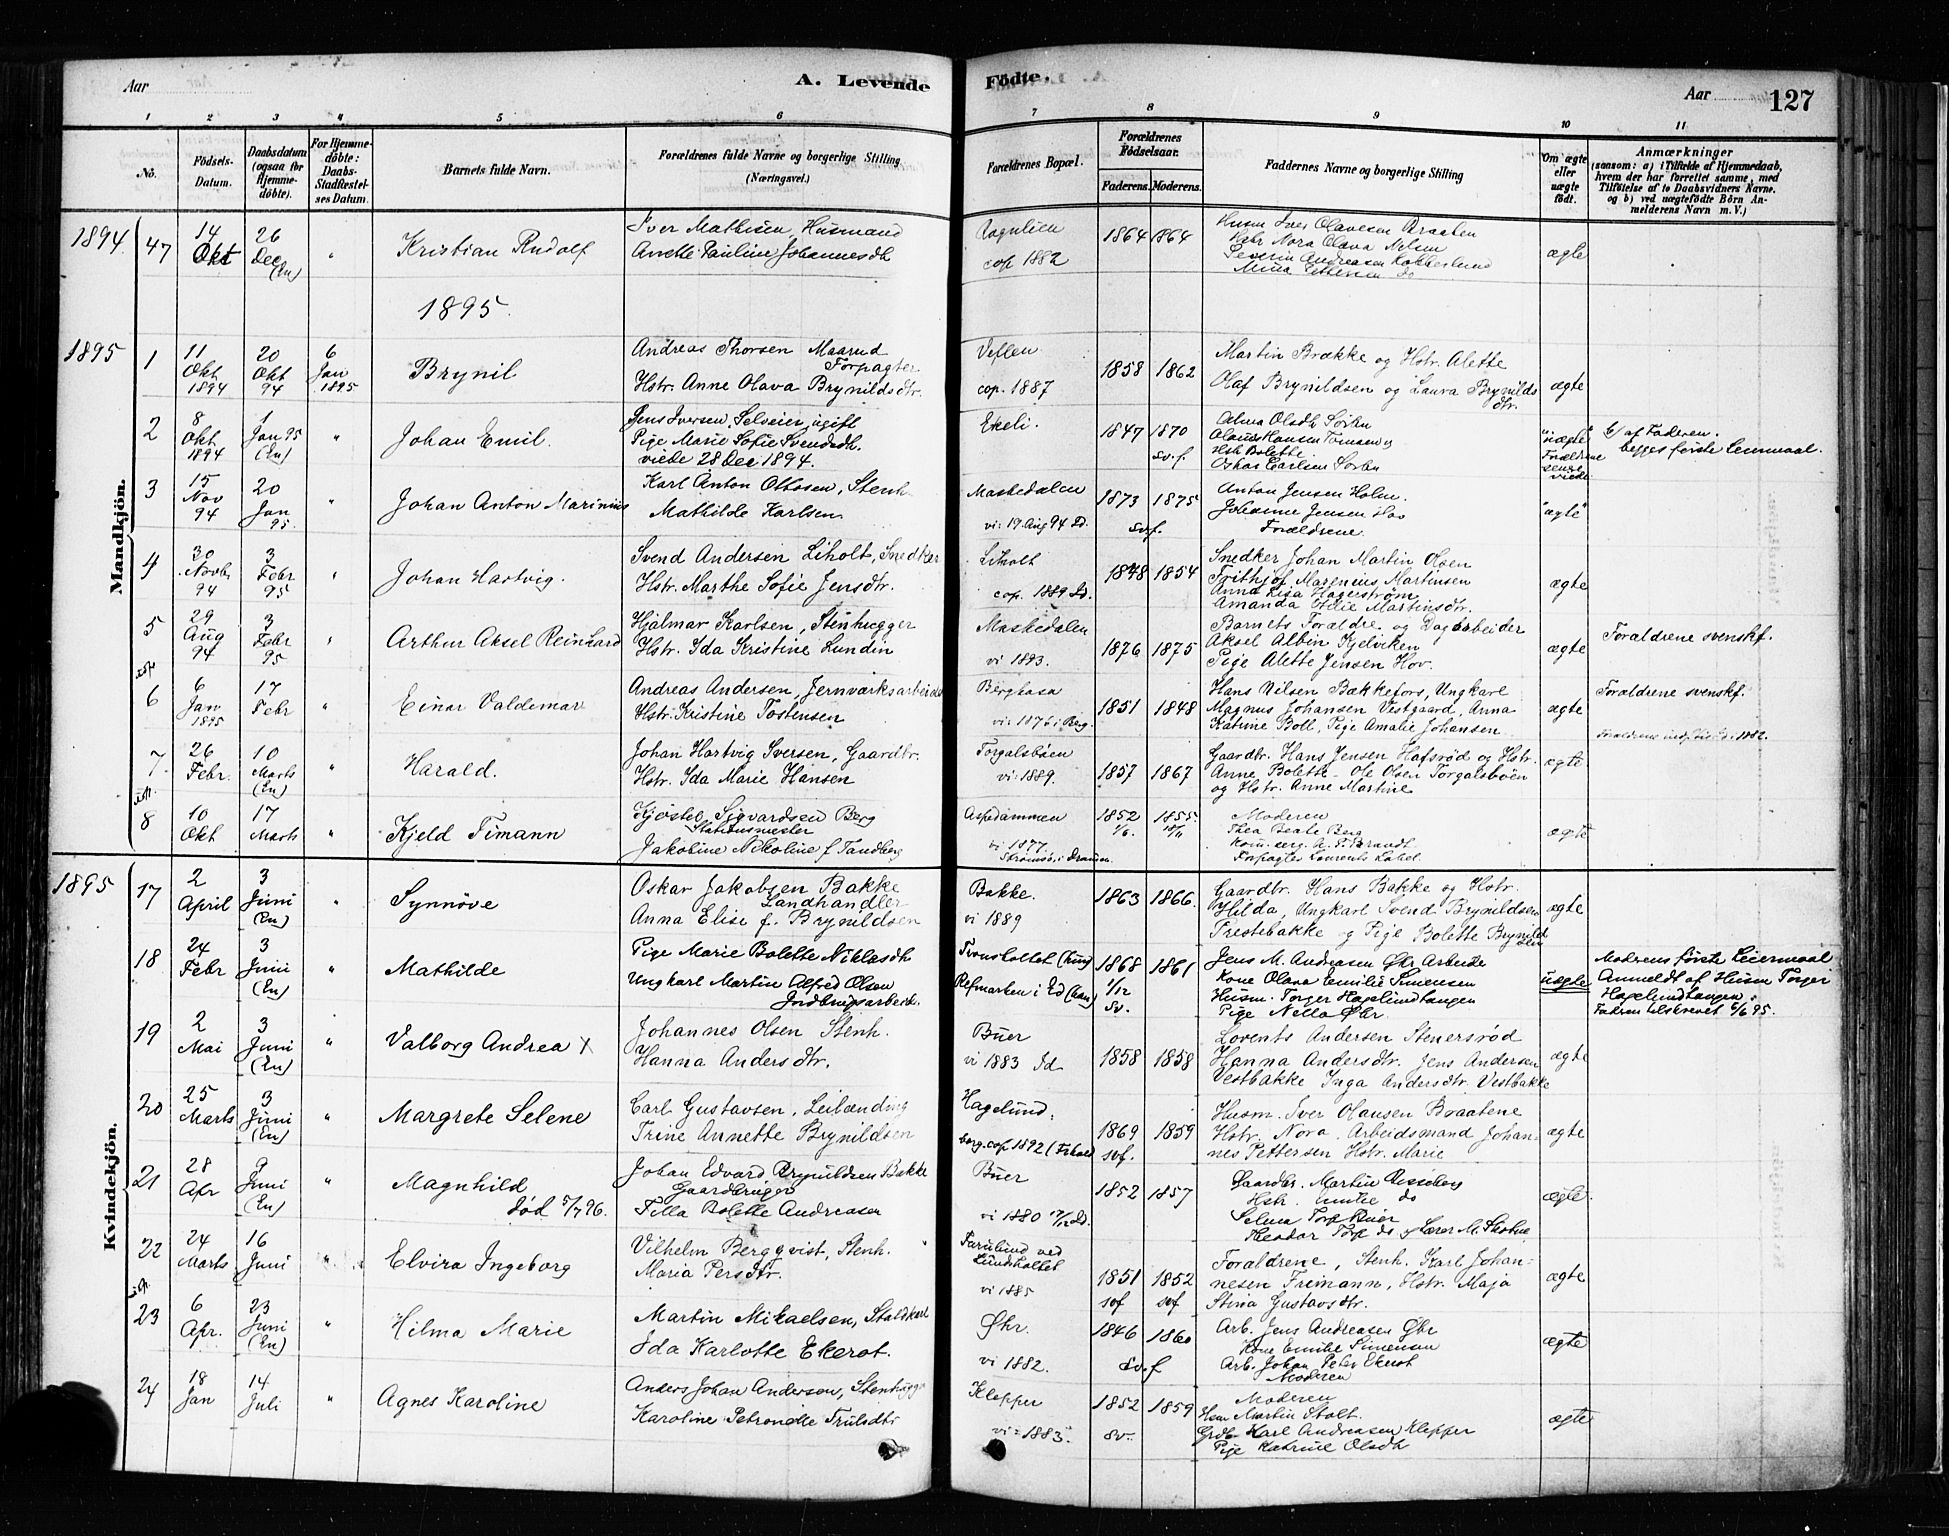 Aar
A. Levende
Födte.
Aar
127
1 2 3 4 5 6 7 8 9 10 11
No.
Födsels-Datum.
Daabsdatum (ogsaa for Hjemmedöbte).
For Hjemmedöbte: Daabs-Stadfæstelses Datum.
Barnets fulde Navn.
Forældrenes fulde Navne og borgerlige Stilling (Næringsvei.)
Forældrenes Bopæl.
Forældrenes Födselsaar.
Faderens. Moderens.
Faddernes Navne og borgerlige Stilling
Om ægte eller uægte födt.
Anmærkninger
(saasom: a) i Tilfælde af Hjemmedaab,
hvem der har forrettet samme, med
Tilföielse af to Daabsvidners Navne.
og b) ved uægtefödte Börn An-
melderens Navn m. V.)
Mandkjön.
1894 47 14 Okt 26 Dec (En) " Kristian Rudolf
Iver Mathisen, Husmand
Anette Pauline Johannesdt
cop 1882
1864 1864
Husm Iver Olavesen Braaten
Hstr Nora Olava Nelsen
Severin Andreasen
Mina Pettersen do
ægte
1895.
1895 1 11 Okt 1894 20 Okt 94 6 Jan 1895 Brynil
Andreas Thorsen Maarud
Forpagter
Hstr. Anne Olava Brynildsdtr.
Veflen
cop. 1887
1858 1862
Martin Brække og Hstr. Alette
Olaf Brynildsen og Laura Brynilds
dtr.
ægte
2 8 Okt 1894 1 Jan 95 (En) " Johan Emil.
Jens Iversen, Selveier, ugift
Pige Marie Sofie Svendsdt.
viede 28 Dec 1894.
Ekeli.
1847 1870
sv. f.
Alma Olsdt Sorbn
Hstr Bolette
Oskar Carlsen Sorbn
"uægte"
Forældrene
senere
viede
b/ af Faderen.
begges første Leiermaal.
3 15 Nov 94 20 Jan 95. " Johan Anton Marinius
Karl Anton Ottosen, Stenh
Mathilde Karlsen
Maskedalen
vi: 19. Aug 94 Id.
1873 1875
sv.f.
Anton Jensen Holm.
Johanne Jensen Hov
Forældrene.
"ægte"
4 30 Novbr 94 3 Febr 95 " Johan Hartvig.
Svend Andersen Liholt, Snedker
Hstr. Marthe Sofie Jensdtr.
Liholt
cop. 1889 Id.
1848 1854
Snedker Johan Martin Olsen
Frithjof Marenius Martinsen
Anna Lisa Hagerstrøm
Amanda Otilie Martinsdtr.
ægte
5 29 Aug 94 3 Febr 95 " Arthur Aksel Reinhard
Hjalmar Karlsen, Stenhugger
Hstr. Ida Kristine Lundin
Maskedalen
vi 1893.
1876 1875
Barnets Forældre og Dagarbeider
Aksel Albin Kjelviken
Pige Alette Jensen Hov.
ægte
Forældrene svenskf.
6 6 Jan 1895 17 Febr " Einar Valdemar
Andreas Andersen, Jernværksarbeider
Hstr. Kristine Tostensen
Berghasa
vi: 1876 i Berg.
1851 1848
Hans Nilsen Bækkefors, Ungkarl
Magnus Johansen Vestgaard, Anna
Katrine Boll, Pige Amalie Johansen
ægte
Forældrene svenskf.
7 26 Febr. 10 Marts (En) " Harald.
Johan Hartvig Iversen, Gaardbr.
Hstr. Ida Marie Hansen
Torgalsbøen
vi: 1889.
1857 1867
Gaardbr. Hans Jensen Hafsrød og Hstr.
Anne Bolette - Ole Olsen Torgalsbøen
og Hstr. Anne Martine
ægte
8 10 Okt 17 Marts " Kjeld Timann
Kjøstel Sigvardsen Berg
Stationsmester
Jakobine Nikoline f. Tandberg
Aspedammen
vi 1877.
Strømsø i Drammen.
1852 1/6. 1855. 18/11
Moderen
Thea Beate Berg
Forpagter Laurents Label
ægte
Kvindekjön.
1895 17 2 April 3 Juni (En) " Synnøve
Oskar Jakobsen Bakke
Landhandler
Anna Elise f. Brynildsen
Bakke.
vi 1889
1863 1866.
Gaardbr. Hans Bakke og Hstr.
Hilda, Ungkarl Svend Brynildsen
Prestebakke og Pige Bolette Brynild
sen
ægte
18 24 Febr 3 Juni (En) " Mathilde
Pige Marie Bolette Niklasdt
Ungkarl Martin Alfred Olsen
Jordbrugsarbeid.
Tronsholtet (hun)
Refmarken i Ed (han)
1868 1/12 Sv. 1861
Jens M. Andreasen Øbr Arbeide
Kone Olava Emilie Simensen
Husm. Torger Hagelundtangen
Pige Nella Øbr.
uægte
Moderens første Leiermaal
Anmeldt af Husm Torger
Hagelundtangen.
Fadren tilskrevet 6/6 95.
19 2 Mai 3 Juni (En) " Valborg Andrea X
Johannes Olsen Stenh.
Hanna Andersdtr.
Buer
vi 1883 Id
1858 1858
Lovents Andersen Stenersrød
Hanna Andersdtr. Jens Andersen
Vestbakke Inga Andersdtr. Vestbakke
ægte
20 25 Marts 3 Juni (En) " Margrete Selene
Carl Gustavsen, Leilænding
Trine Annette Brynildsen
Hagelund:
borg. cop 1892 (Frhald)
1869 svf. 1859
Husm. Iver Olausen Braatene
Hstr. Nora, Arbeidsmand Johan-
nes Pettersen Hstr. Marie
ægte
21 28 Apr 9 Juni (En) " Magnhild
død 5/7 96.
Johan Edvard Brynildsen Bakke
Gaardbruger
Tilla Bolette Andreasen
Buer
vi 1880 17/12 Id.
1852 1857
Gaardbr. Martin
Hstr. Emilie do
Selma Torp Buer
Theodor Torp do
ægte.
22 24 Marts 16 Juni " Elvira Ingeborg
Vilhelm Bergqvist, Stenh.
Maria Persdtr.
Furulund ved
Lundholtet
vi 1885
1851 svf 1852 svf
Forældrene, Stenh. Karl Johan-
nesen Freimann, Hstr. Maja
Stina Gustavsdtr.
ægte
23 6 Apr. 23 Juni (En) " Hilma Marie
Martin Mikaelsen, Staldkarl
Ida Karlotte Ekerot.
Øbr.
vi 1882.
1846 1860
sv. f
Arb. Jens Andreasen Øbr
Kone Emilie Simensen
Arb. Johan Peter Ekerot
Moderen
ægte
24 18 Jan 14 Juli " Agnes Karoline
Anders Johan Anderson, Stenhugger
Karoline Petronelle Trulsdtr
Klepper
vi: 1883.
1852 sv. 1859
Moderen
Hsm Martin Stolt.
Grdbr Karl Andreasen Klepper
Pige Katrine Olsdt
ægte